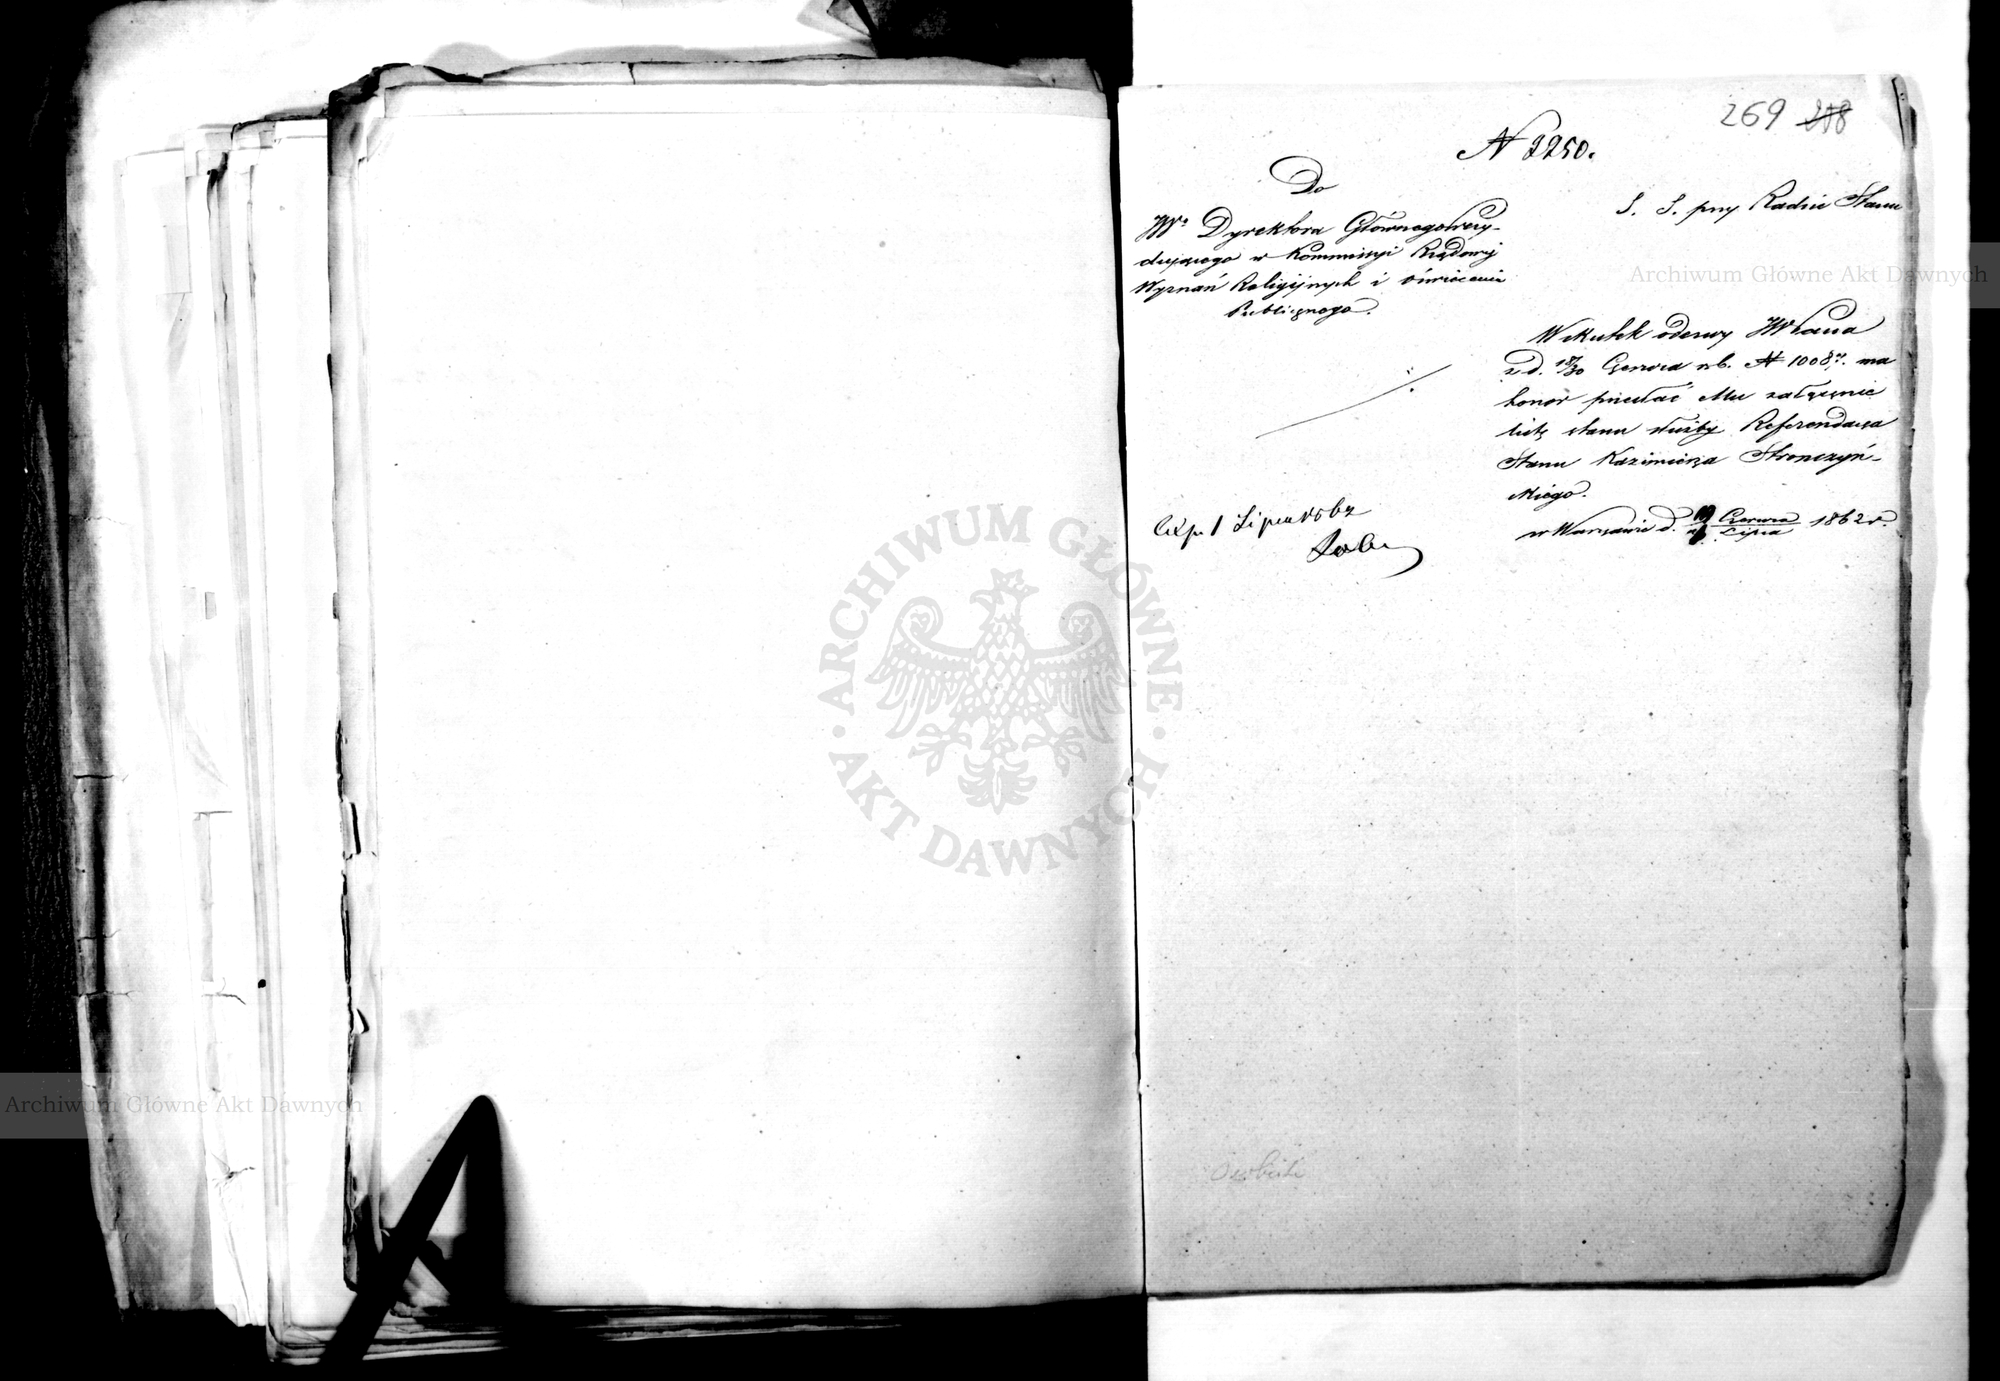 269 208
N 2250.
Do
JW. Dyrektora Głównego Prezy-
dującego w Kommissyi Rządowej
Wyznań Religijnych i Oświecenia
Publicznego.
S. S. przy Radzie Stanu
Wskutek odezwy JWPana
z d. 18/30 Czerwca r.b. N 1008. ma
honor przesłać Mu załącznie
listę stanu służby Referendarza
Stanu Kazimierza Stronczyń-
skiego.
w Warszawie d. Czerwca/Lipca 1862 r.
Exp. 1 Lipca 1862
ARCHIWUM GŁÓWNE AKT DAWNYCH
Archiwum Główne Akt Dawnych
Archiwum Główne Akt Dawnych